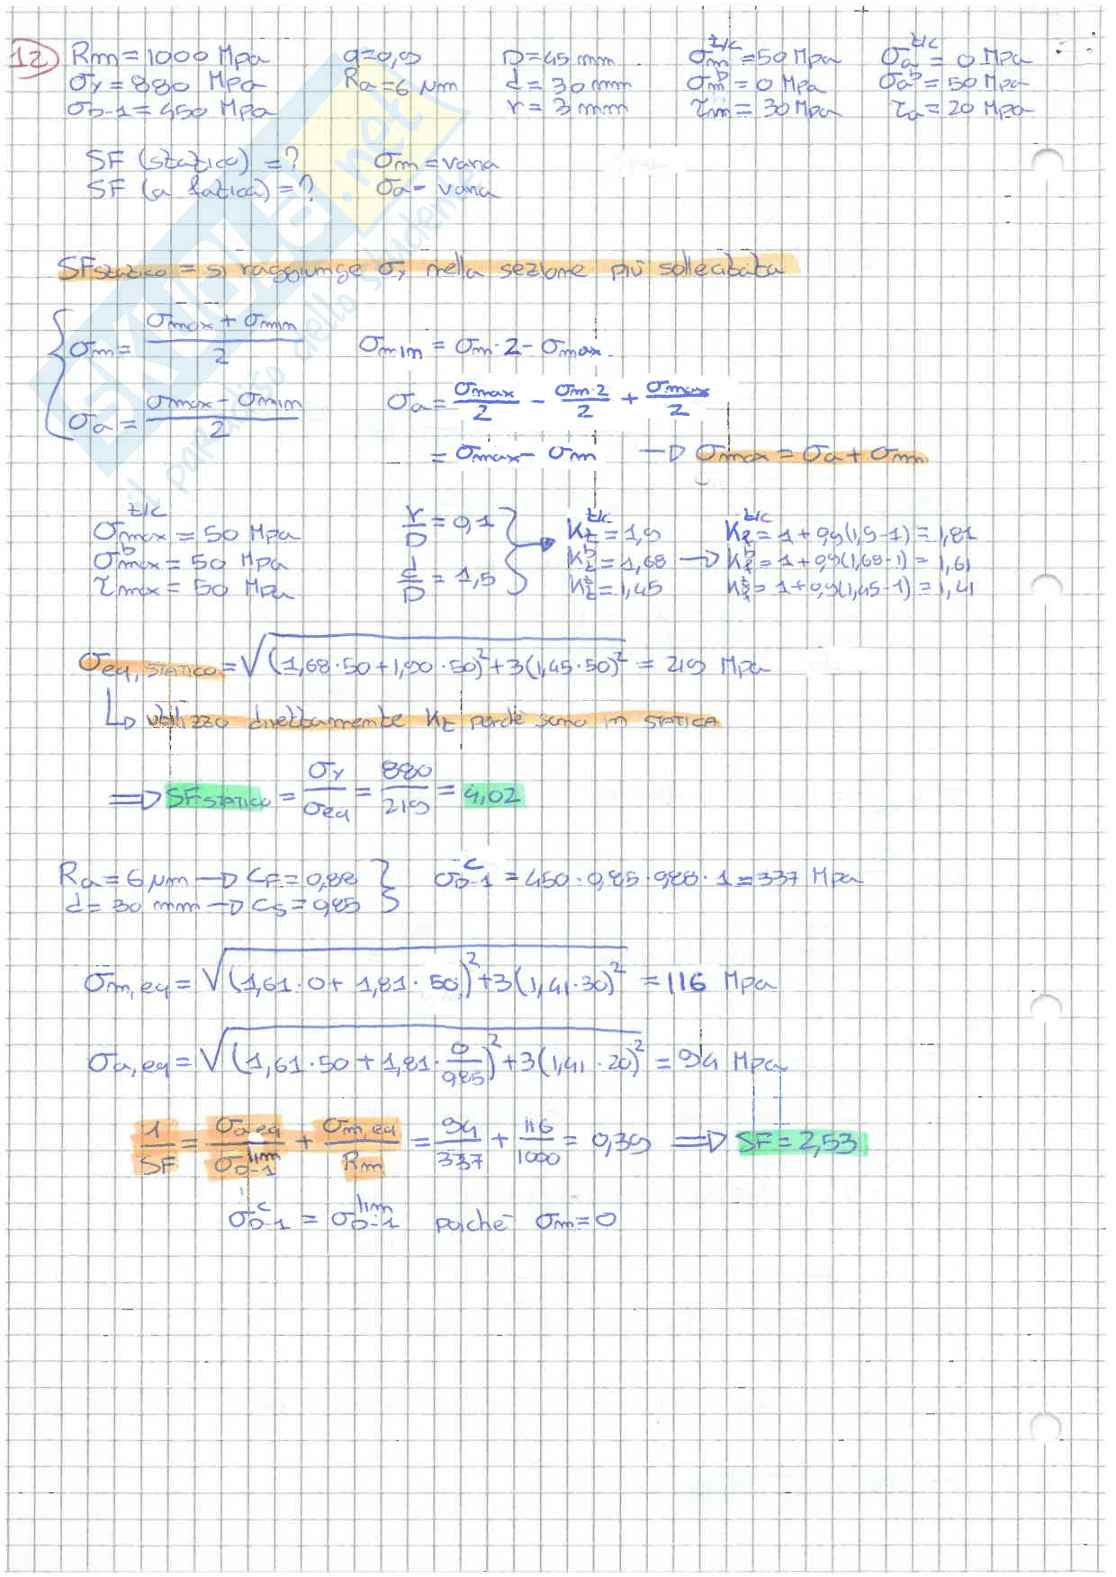 12 Rm = 1000 Mpa q = 0,9 D = 45 mm σm^t/c = 50 Mpa σa^t/c = 0 Mpa
σy = 880 Mpa Ra = 6 μm d = 30 mm σm^b = 0 Mpa σa^b = 50 Mpa
σD-1 = 450 Mpa r = 3 mm τm = 30 Mpa τa = 20 Mpa
SF (statica) = ? σm = varia
SF (a fatica) = ? σa = varia
SF statico = si raggiunge σy nella sezione più sollecitata
σm = (σmax + σmin)/2 σmin = σm·2 - σmax
σa = (σmax - σmin)/2 σa = σmax/2 - σm·2/2 + σmax/2
= σmax - σm → σmax = σa + σm
σmax^t/c = 50 Mpa r/D = 0,1 Kt^t/c = 1,9 Kf^t/c = 1 + 0,9(1,9-1) = 1,81
σmax^b = 50 Mpa Kt^b = 1,68 → Kf^b = 1 + 0,9(1,68-1) = 1,61
τmax = 50 Mpa d/D = 1,5 Kt^t = 1,45 Kf^t = 1 + 0,9(1,45-1) = 1,41
σeq, STATICO = √((1,68·50 + 1,90·50)² + 3(1,45·50)²) = 219 Mpa
↳ utilizzo direttamente Kt perché sono in STATICA
⇒ SF STATICO = σy/σeq = 880/219 = 4,02
Ra = 6 μm → CF = 0,88 σD-1^c = 450·0,85·0,88·1 = 337 Mpa
d = 30 mm → CS = 0,85
σm,eq = √((1,61·0 + 1,81·50)² + 3(1,41·30)²) = 116 Mpa
σa,eq = √((1,61·50 + 1,81·0/0,85)² + 3(1,41·20)²) = 94 Mpa
1/SF = σa,eq/σD-1^lim + σm,eq/Rm = 94/337 + 116/1000 = 0,39 ⇒ SF = 2,53
σD-1^c = σD-1^lim poiché σm = 0
SKUOLA.net
il paradiso dello studente